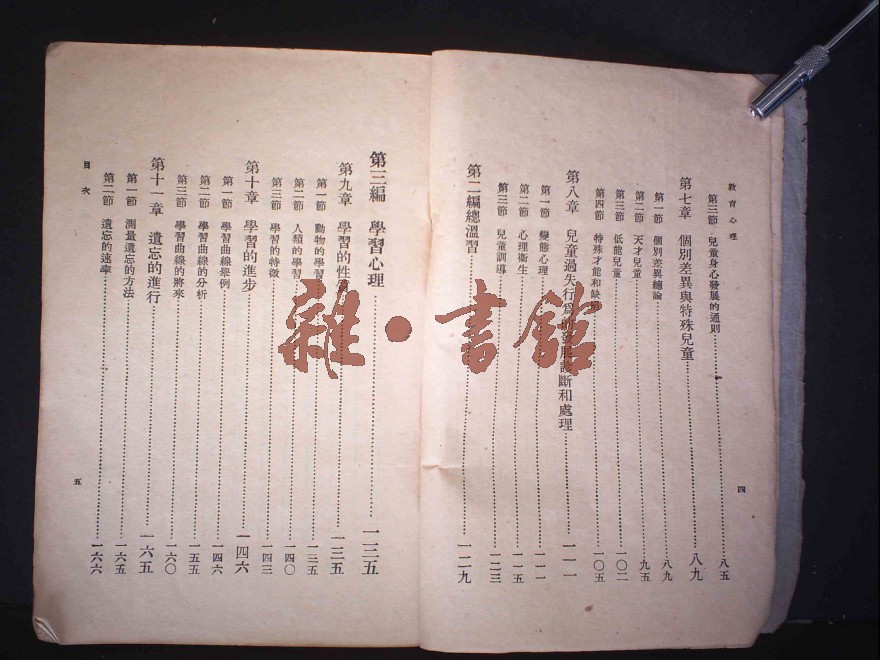 教育心理
第三節 兒童身心發展的通則 八五
第七章 個別差異與特殊兒童 八九
第一節 個別差異總論 八九
第二節 天才兒童 九五
第三節 低能兒童 一〇二
第四節 特殊才能和缺 一〇五
第八章 兒童過失行爲的發展診斷和處理 一一一
第一節 變態心理 一一一
第二節 心理衛生 一一五
第三節 兒童訓導 一二三
第二編總溫習 一二九
四
第三編 學習心理 一三五
第九章 學習的性質 一三五
第一節 動物的學習 一三五
第二節 人類的學習 一四〇
第三節 學習的特徵 一四三
第十章 學習的進步 一四六
第一節 學習曲線舉例 一四六
第二節 學習曲線的分析 一五五
第三節 學習曲線的將來 一六〇
第十一章 遺忘的進行 一六五
第一節 測量遺忘的方法 一六五
第二節 遺忘的速率 一六六
目次
五
雜・書館